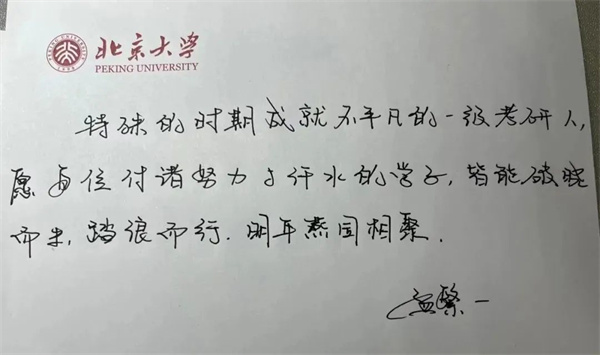 北京大学
PEKING UNIVERSITY
特殊的时期成就不平凡的一级考研人,
愿每位付诸努力与汗水的学子,皆能破晓
而来,踏浪而行.明年燕园相聚.
孟繁一